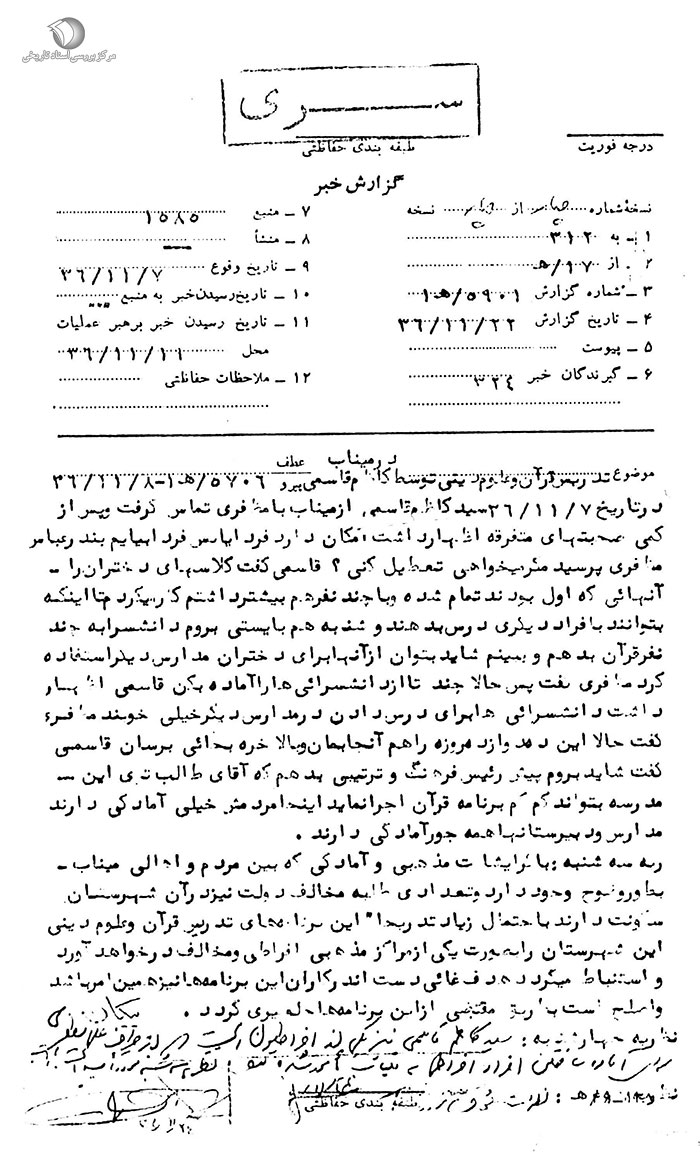 مرکز بررسی اسناد تاریخی
ســـری
طبقه بندی حفاظتی
درجه فوریت
گزارش خبر
نسخهٔ شماره چهار از چهار نسخه
۱ ـ به ۳۱۲
۲ ـ از ۱۷/هـ
۳ ـ شماره گزارش ۵۹۰۱/هـ۱
۴ ـ تاریخ گزارش ۳۶/۱۱/۲۲
۵ ـ پیوست
۶ ـ گیرندگان خبر ۳۲۴
۷ ـ منبع ۱۵۸۵
۸ ـ منشأ
۹ ـ تاریخ وقوع ۳۶/۱۱/۷
۱۰ ـ تاریخ رسیدن خبر به منبع
۱۱ ـ تاریخ رسیدن خبر برهبر عملیات
محل ۳۶/۱۱/۱۱
۱۲ ـ ملاحظات حفاظتی
در میناب
موضوع تدریس قرآن و علوم دینی توسط کاظم قاسمی عطف پیرو ۵۷۰۶/هـ۱-۳۶/۱۱/۸
در تاریخ ۳۶/۱۱/۷ سید کاظم قاسمی از میناب با مظفری تماس گرفت و پس از
کمی صحبتهای متفرقه اظهار داشت امکان دارد فردا یا پس فردا بیایم بندرعباس
مظفری پرسید مگر میخواهی تعطیل کنی ؟ قاسمی گفت کلاسهای دختران را ـ
آنهائی که اول بودند تمام شده و با چند نفر هم بیشتر داشتم کار میکردم تا اینکه
بتوانند بافراد دیگری درس بدهند و شنبه هم بایستی بروم دانشسرا به چند
نفر قرآن بدهم و ببینم شاید بتوان از آنها برای دختران مدارس دیگر استفاده
کرد مظفری گفت پس حالا چند تا از دانشسرائی ها را آماده بکن قاسمی اظهار
داشت دانشسرائی ها برای درس دادن در مدارس دیگر خیلی خوبند مظفری
گفت حالا این دهه دوازده روزه را هم آنجا بمان و بالاخره بجائی برسان قاسمی
گفت شاید بروم پیش رئیس فرهنگ و ترتیبی بدهم که آقای طالب تری این سه
مدرسه بتواند کم کم برنامه قرآن اجرا نماید اینجا مردمش خیلی آمادگی دارند
مدارس و دبیرستانها همه جور آمادگی دارند .
نظریه سه شنبه : با گرایشات مذهبی و آمادگی که بین مردم و اهالی میناب ـ
بطور وضوح وجود دارد و تعدادی طلبه مخالف دولت نیز در آن شهرستان
سکونت دارند باحتمال زیاد تدریجا" این برنامه های تدریس قرآن و علوم دینی
این شهرستان را بصورت یکی از مراکز مذهبی افراطی و مخالف در خواهد آورد
و استنباط میگردد هدف غائی دست اندرکاران این برنامه ها نیز همین امر باشد
و اصلح است بطریق مقتضی از این برنامه ها جلوگیری گردد .
نظریه چهارشنبه : سید کاظم قاسمی
طبقه بندی حفاظتی